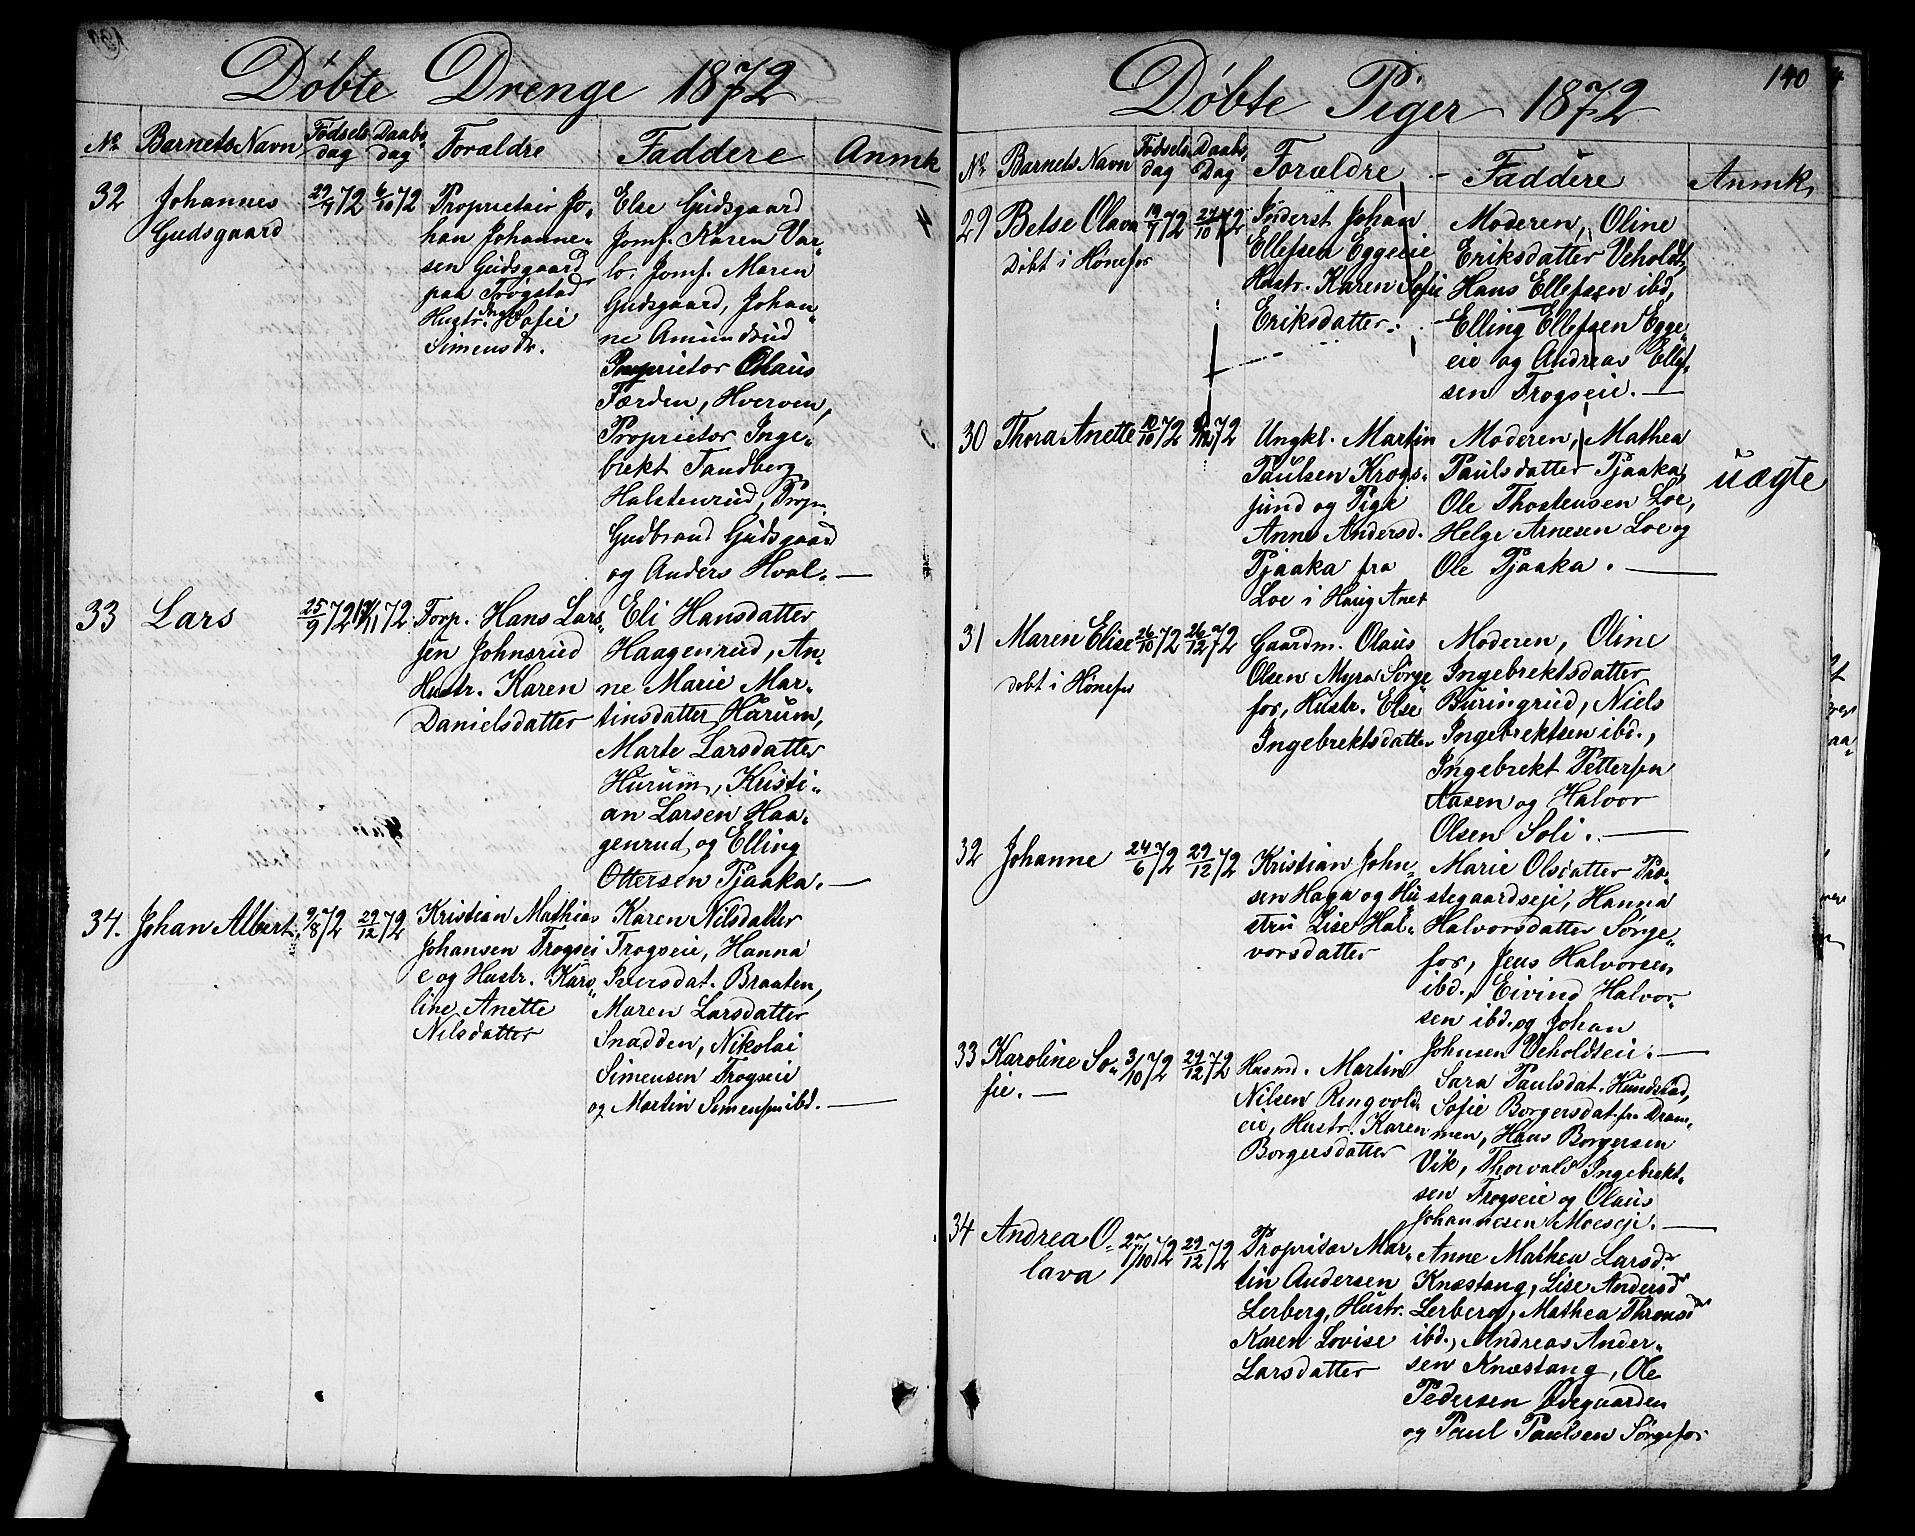 Döbte Drenge 1872
No Barnets Navn Födsels dag Daabs dag Forældre Faddere Anmk
32 Johannes Gudsgaard 29/7 72 6/10 72
Proprietair Jo-
han Johanne-
sen Gudsgaard
paa Trögstad
Hustr. Sofie
Simensdr.
Else Gudsgaard
Jomf. Karen Var-
lo, Jomf. Maren
Gudsgaard, Johan-
ne Amundsrud
Proprietor Olaus
Færden, Hverven,
Proprietor Inge-
brekt Tandberg
Halstenrud, Propr.
Gudbrand Gudsgaard
og Anders Hval. —
33 Lars 25/9 72 /11 72
Torp. Hans Lars-
sen Johnsrud
Hustr. Karen
Danielsdatter
Eli Hansdatter
Haagenrud, An-
ne Marie Mar-
tinsdatter Harum,
Marte Larsdatter
Hurum, Kristi-
an Larsen Haa-
genrud og Elling
Ottersen Tjaaka. —
34. Johan Albert 9/8 72 29/12 72
Kristian Mathias
Johansen Trogsei
e og Hustr. Karo-
line Anette
Nilsdatter
Karen Nilsdatter
Trogseie, Hanna
Iversdat. Braaten,
Maren Larsdatter
Snadden, Nikolai
Simensen Trogseie
og Martin Simensen ibd. —
140
Döbte Piger 1872
No Barnets Navn Födsels dag Daabs Dag Forældre Faddere Anmk.
29 Betse Olava 19/7 72 27/10 72
Döbt i Hönefos
Inderst Johan
Ellefsen Eggeeie
Hustr. Karen Sofie
Eriksdatter.
Moderen, Oline
Eriksdatter Veholdt,
Hans Ellefsen ibd,
Elling Ellefsen Egge-
eie og Andreas Ellef-
sen Trogseie. —
30 Thora Anette 10/10 72 72
Ungkl. Martin
Paulsen Krogs-
sund og Pige
Anne Andersd.
Tjaaka fra
Loe i Haug Anex
Moderen, Mathea
Paulsdatter Tjaaka,
Ole Thostensen Loe,
Helge Arnesen Loe og
Ole Tjaaka. —
uægte
31 Maren Elise 26/10 72 26/12 72
döbt i Hönefos
Gaardm. Olaus
Olsen Myra Sörge-
for, Hustr. Else
Ingebrektsdatter
Moderen, Oline
Ingebrektsdatter
Buringrud, Niels
Ingebrektsen ibd.,
Ingebrekt Pettersen
Aasen og Halvor
Olsen Soli. —
32 Johanne 24/6 72 29/12 72
Kristian John-
sen Haga og Hu
stru Lise Hal-
vorsdatter
Marie Olsdatter Præ-
stegaardseje, Hanna
Halvorsdatter Sörge-
for, Jens Halvorsen
ibd., Eivind Halvor-
sen ibd. og Johan
Johnsen Veholdteie. —
33 Karoline So-
fie. — 3/10 72 29/12 72
Husmd. Martin
Nilsen Ringvold-
eie, Hustr. Karen
Borgersdatter
Sara Paulsdat. Hundstad,
Sofie Borgersdat. fra Dram-
men, Hans Borgersen
Vik, Thorvald Ingebrekt-
sen Trogseie og Olaus
Johannesen Moeseje. —
34 Andrea O-
lava 27/10 72 29/12 72
Propritær Mar-
tin Andersen
Lerberg, Hustr.
Karen Lovise
Larsdatter
Anne Mathea Larsdr
Knæstang, Lise Andersdr
Lerberg, Mathea Thronsdr
ibd., Andreas Ander-
sen Knæstang, Ole
Pedersen Övegaarden
og Paul Paulsen Sörgefos